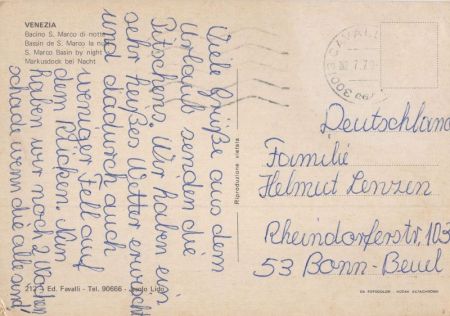 VENEZIA
Bacino S. Marco di notte
Bassin de S. Marco la nuit
S. Marco Basin by night
Markusdock bei Nacht
Viele Grüße aus dem
Urlaub senden die
Pitschens. Wir haben ein
sehr heißes Wetter erwischt
und dadurch auch
weniger Fell auf
dem Rücken. Nun
haben wir noch 2 Wochen
schade wenn die alle sind!
212 - Ed. Favalli - Tel. 90666 - Jesolo Lido
Riproduzione vietata
CAVALL
30013
Deutschland
Familie
Helmut Lenzen
Rheindorferstr. 103
53 Bonn-Beuel
DA FOTOCOLOR - KODAK EKTACHROME